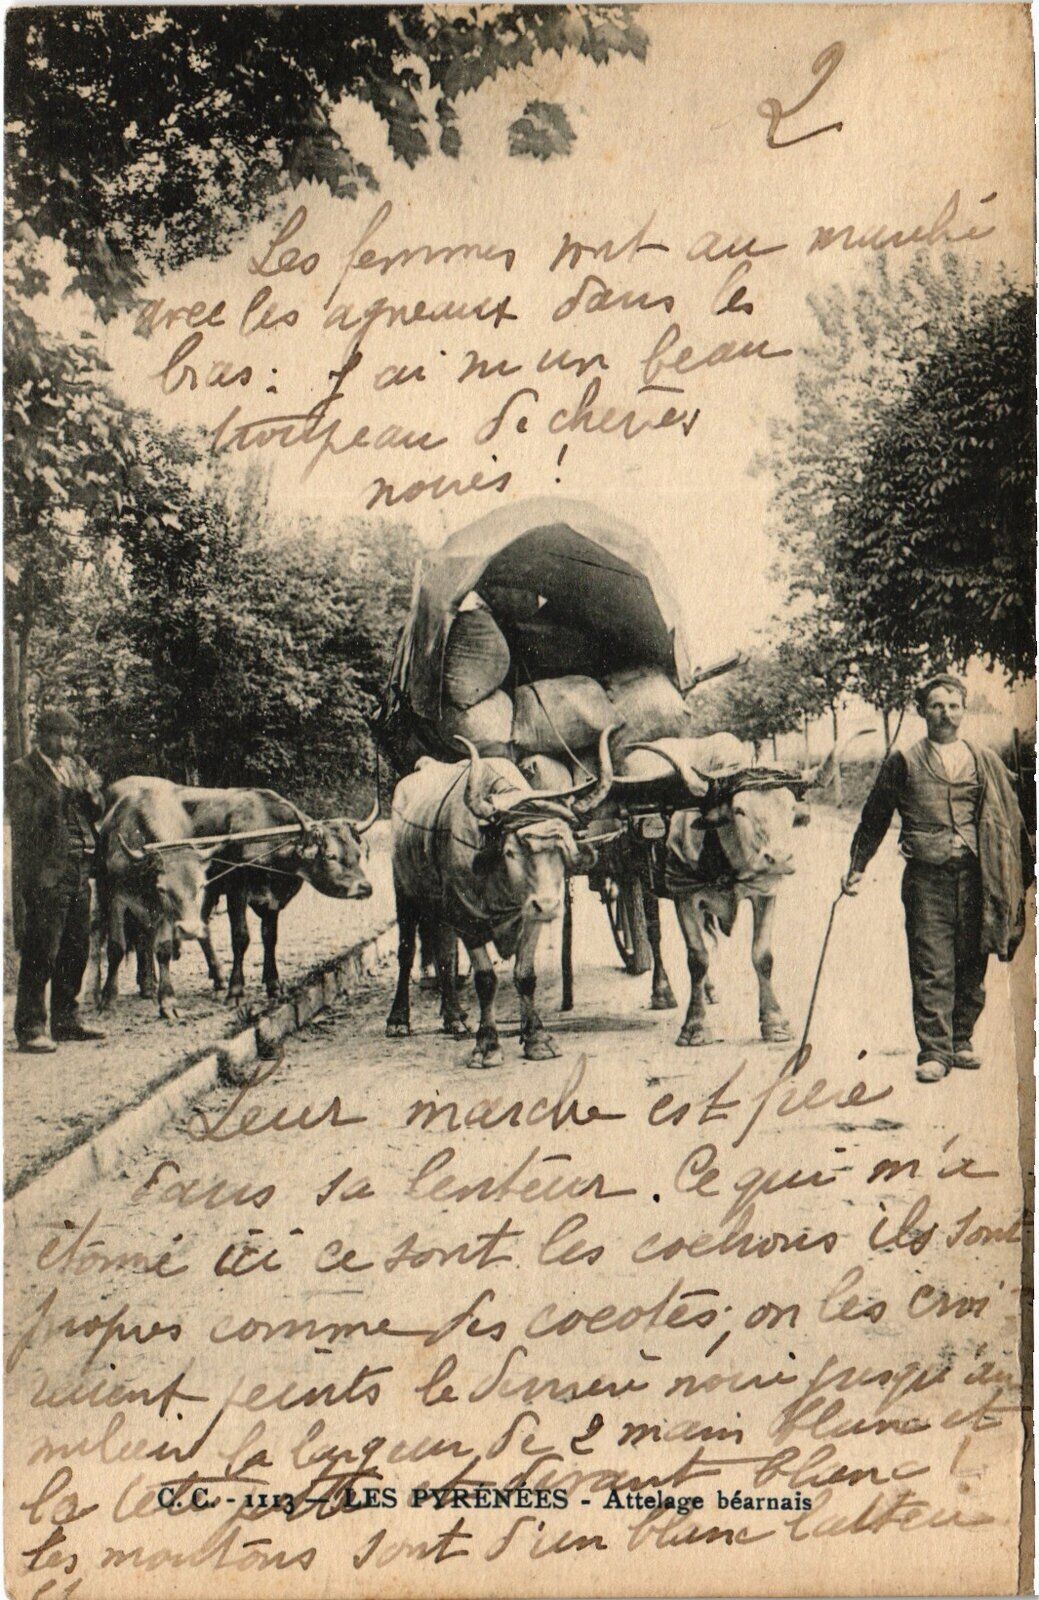 2
Les femmes vont au marché
avec les agneaux dans les
bras: J'ai vu un beau
troupeau de chevres
noires !
Leur marche est fixe
dans sa lenteur. Ce qui m'a
étonné ici ce sont les cochons ils sont
propres comme des cocotes; on les croi-
raient peints le derriere noire jusqu'au
milieu la largeur de 2 main blanc et
la tete et devant blanc !
C. C. - 1113 — LES PYRÉNÉES - Attelage béarnais
les moutons sont d'un blanc laiteux